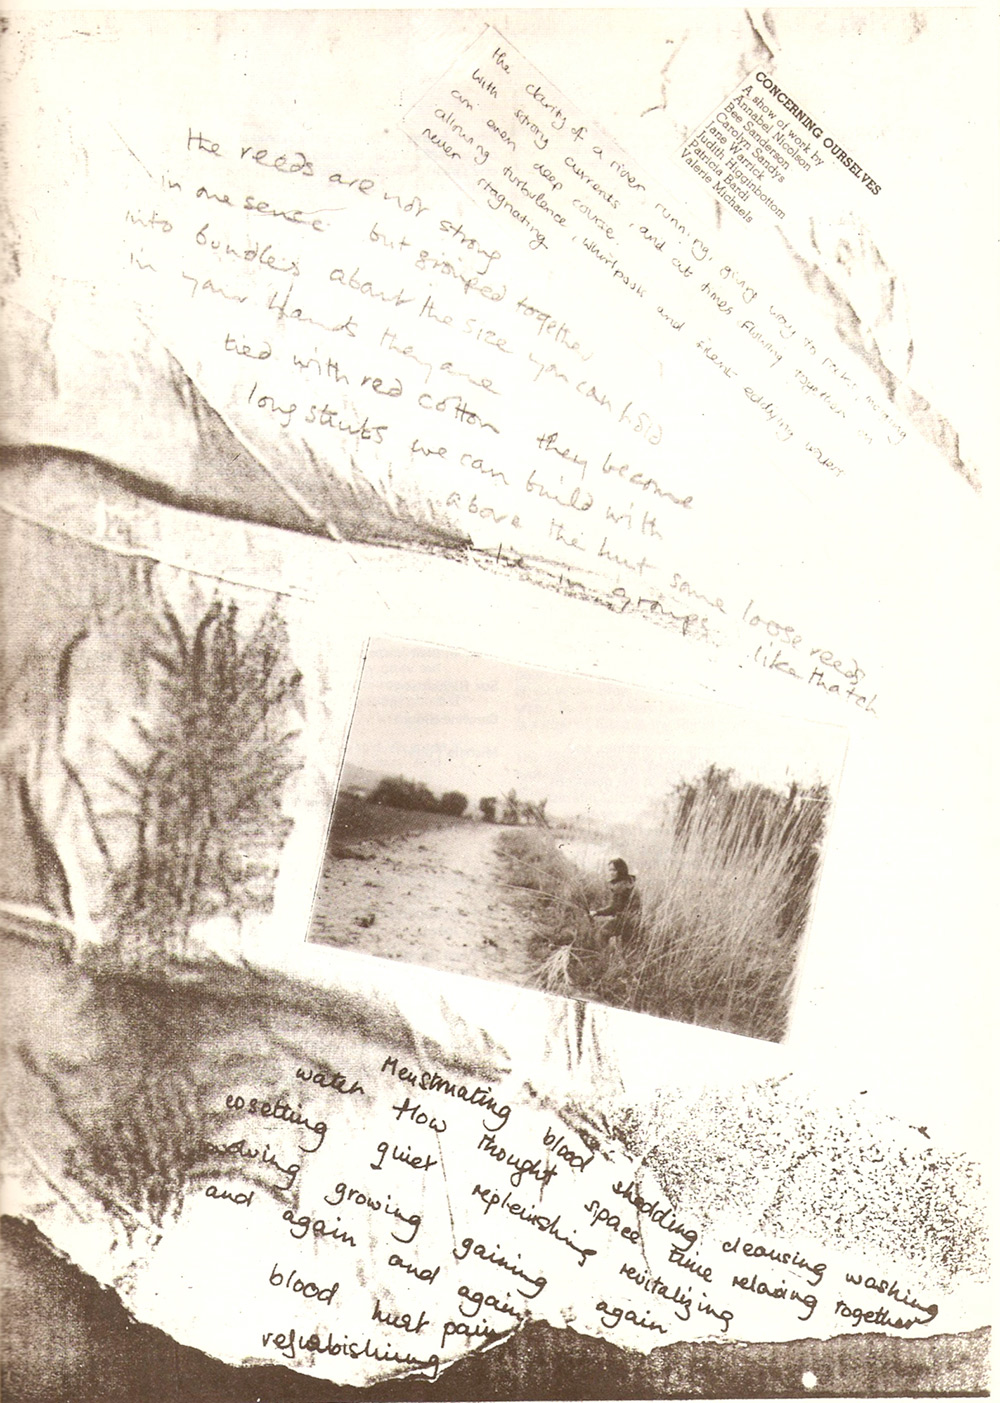 CONCERNING OURSELVES
A show of work by
Annabel Nicolson
Bee Sanderson
Carolyn Sandys
Jane Warrick
Judith Higginbottom
Patricia Bardi
Valerie Michaels
the clarity of a river running, giving way to rocks, moving
with strong currents, and at times flowing together on
an even deep course.
allowing turbulence, whirlpools and silent eddying waters
never stagnating
the reeds are not strong
in one sense but grouped together
into bundles about the size you can hold
in your hands they are
tied with red cotton they become
long struts we can build with
above the hut some loose reeds
lie in groups like thatch
Menstruating blood shedding cleansing washing
water flow thought space time relaxing together
cosetting quiet replenishing revitalizing
moving growing gaining again
and again and again
blood hurt pain
refurbishing